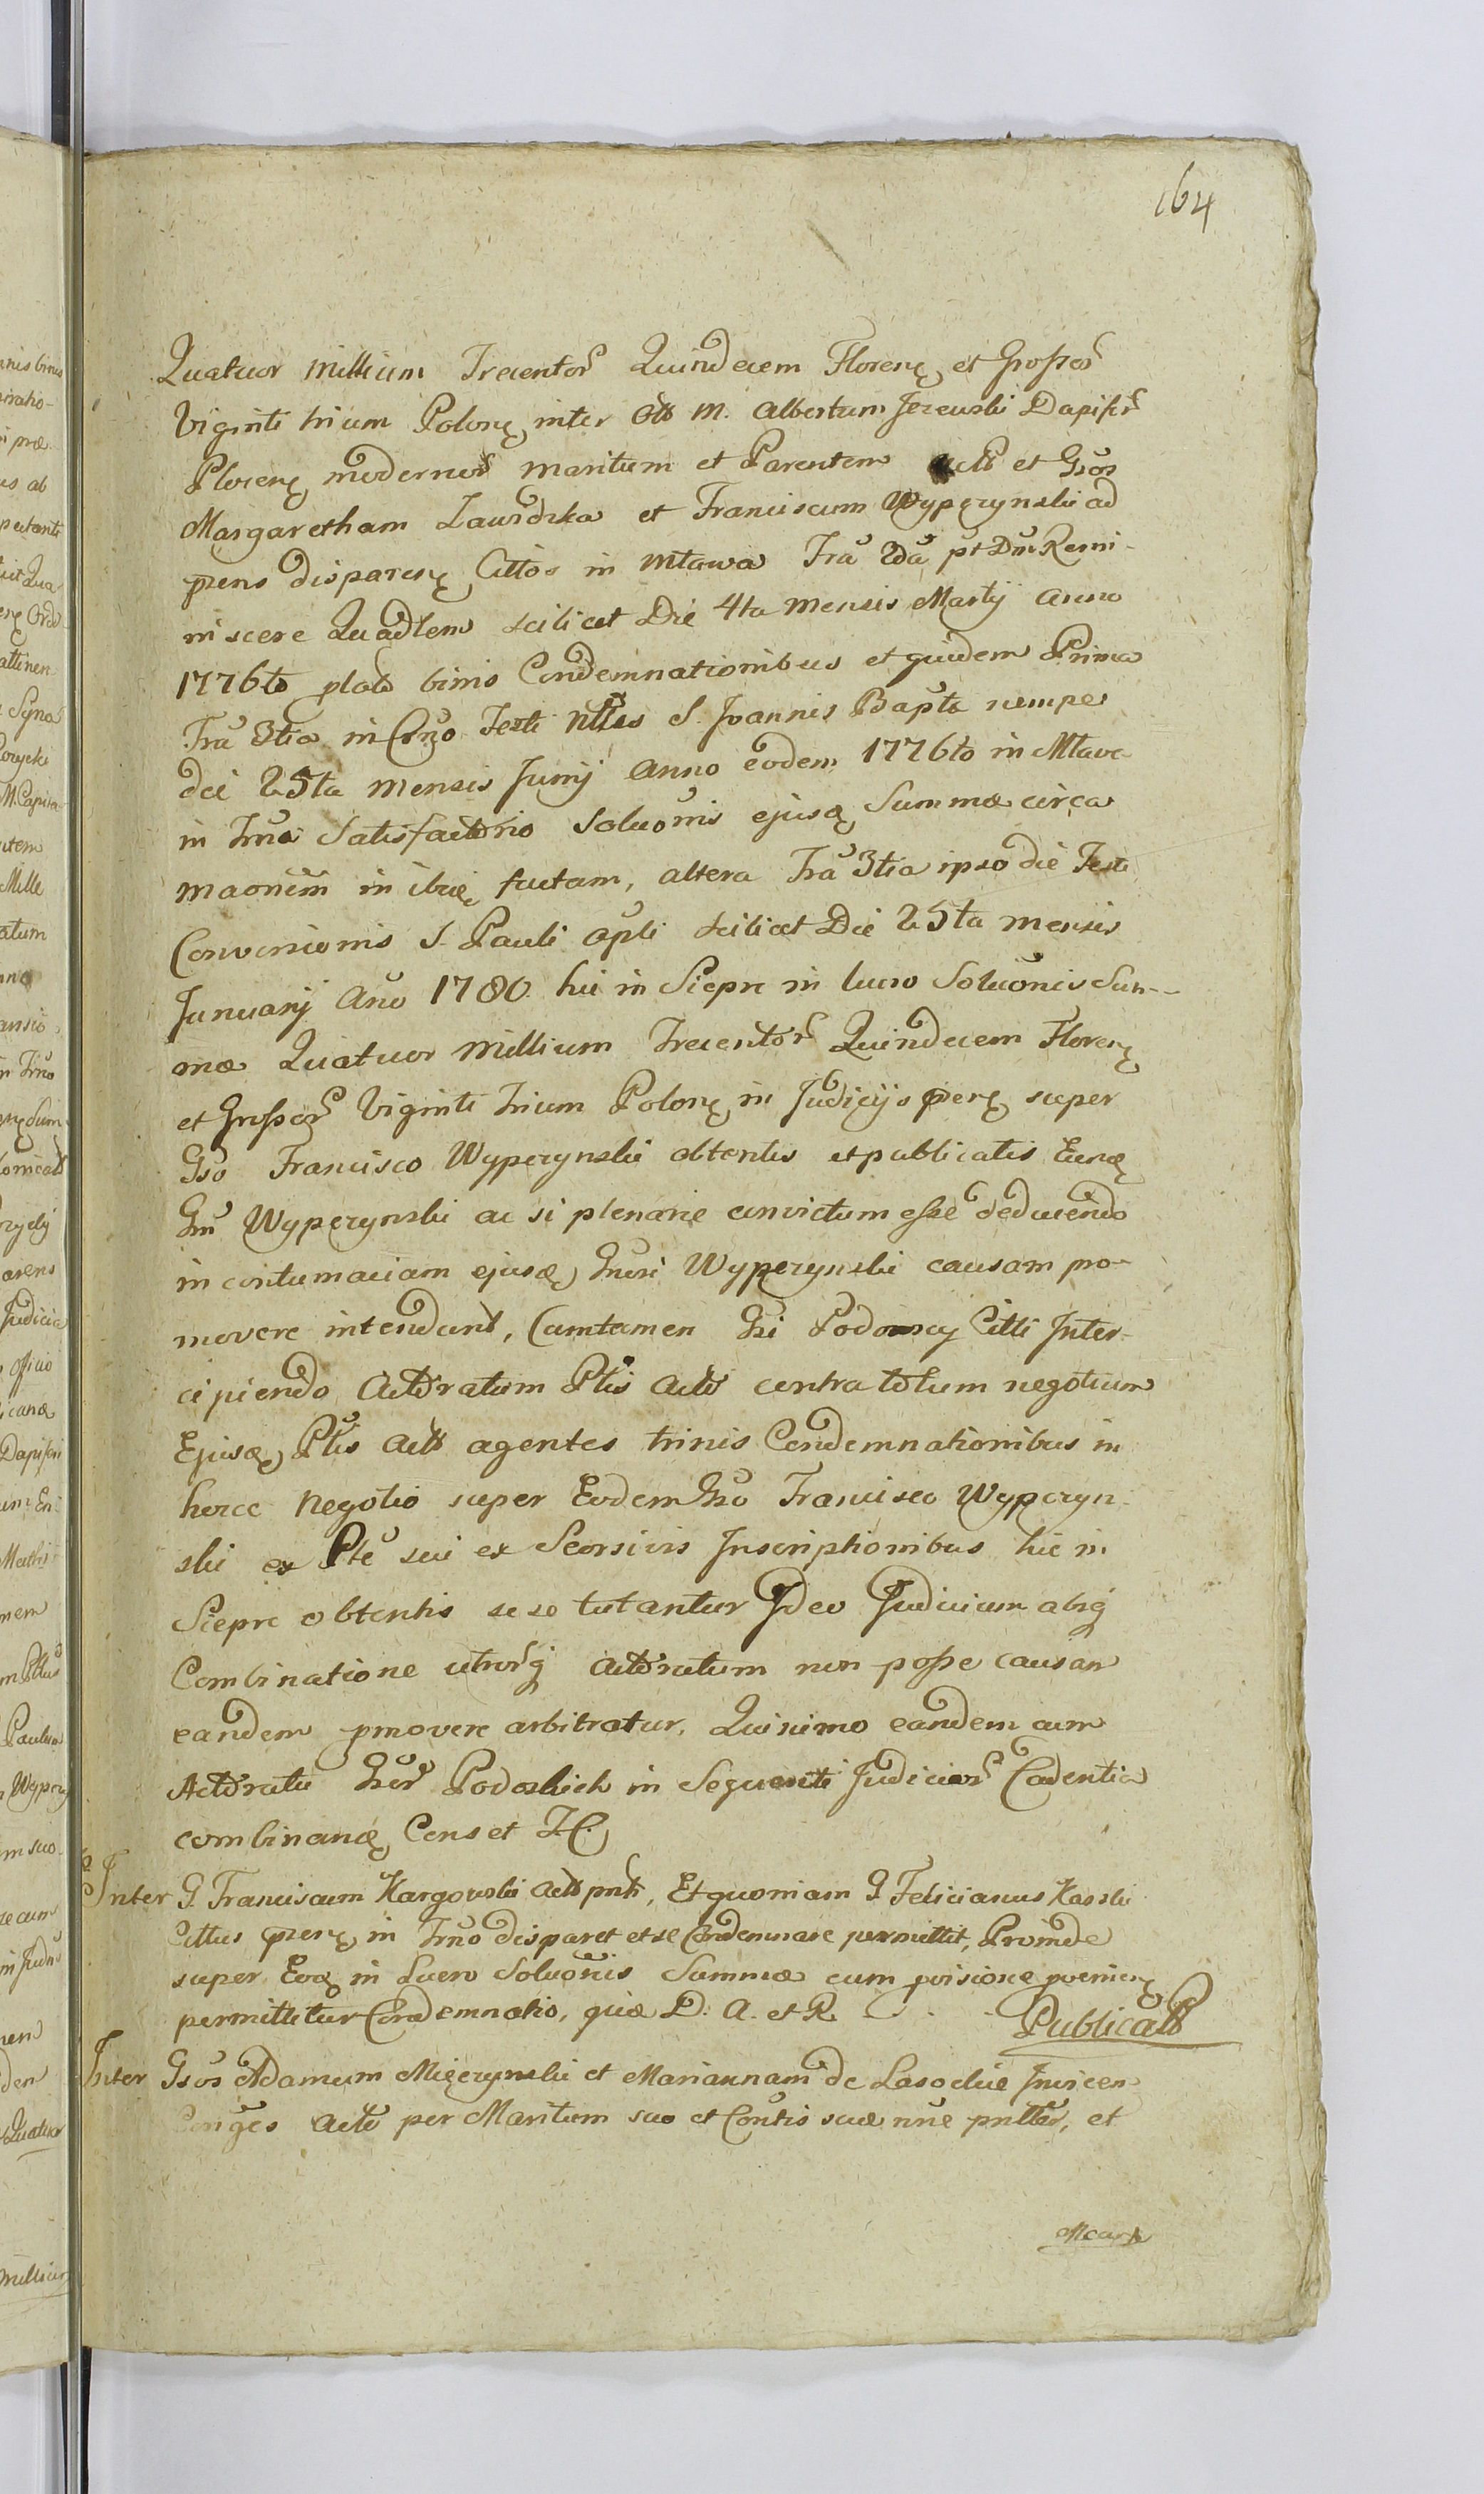 164
Quatuor millium Trecentor Quindecem Floren et Grossor
Viginti trium Polon inter Olb M. Albertum Jezewski Dapifer
Plocen modernor maritum et Parentem Actt et Gsos
Margaretham Zawidzka et Franciscum Wyperzynski ad
prens disparen Cittos in Mlawa Fra 2da pt Dm Remi-
niscere Quadlem scilicet Die 4ta mensis Martij Anno
1776to binis Condemnationibus et quidem Prima
Fra 3tia in Festi S. Joannis Bapta nempe
die 25ta mensis Junij Anno eodem 1776to in Mlava
in Satisfactorio Soluonis ejusq Summæ circa
maonem in factam, altera Fra 3tia ipso die Festi
Conversionis S. Pauli Apli scilicet Die 25ta mensis
Januarij Ano 1780. hic in Sieprc in lucro Soluonis Sum-
mæ Quatuor millium Trecentor Quindecem Floren
et Grossor Viginti trium Polon in Judicijs super
Gso Francisco Wyperzynski obtentis et publicatis Eund
Gm Wyperzynski ac si plenarie convictum esse deducendo
in contumaciam ejusd Gnosi Wyperzynski causam pro-
movere intendant, Cumtamen Gsi Podoscy Citti Inter-
cipiendo Actoratum Ptis Actt contra totum negotium
Ejusd Ptis Actt agentes trinis Condemnationibus in
hocce negotio super Eodem Gso Francisco Wyperzyn-
ski ex Pte sui ex Seorsivis Inscriptionibus hic in
Sieprc obtentis sese tutantur Ideo Judicium absq
Combinatione utrorq Actoratum non posse causam
eandem pmovere arbitratur, Quinimo eandem cum
Actoratu Gsor Podoskich in Sequenti Judicior Cadentia
combinand Censet J. C.
Inter G. Franciscum Kargowski Actt pnt, Et quoniam G. Felicianus Kasski
Cittus in Trno disparet et se Condemnare permittit, Proinde
super Eod in Lucro Soluonis Summæ cum pvisione pvenien
permittitur Condemnatio, quæ D. A. et R. Publicatt
Inter Gsos Adamum Mięczynski et Mariannam de Lasockie Invicem
Conges Actt per Maritum suo et Contis suæ nne pnttes, et